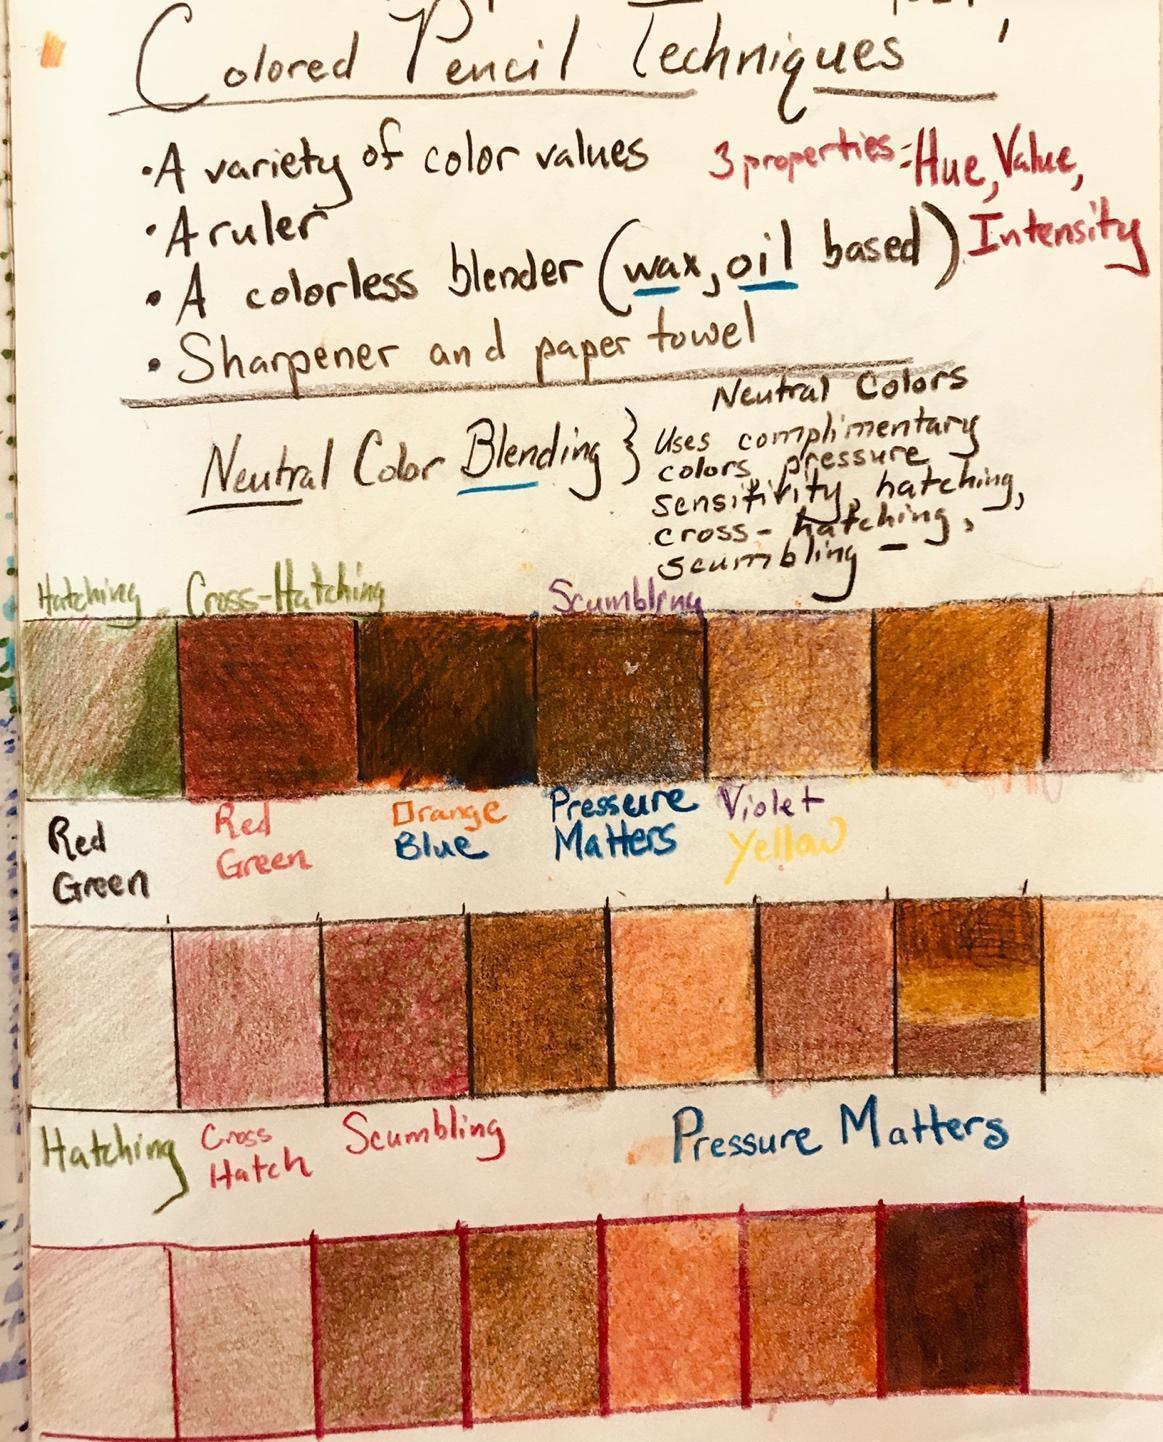 Colored Pencil Techniques
• A variety of color values
3 properties = Hue, Value,
Intensity
• A ruler
• A colorless blender (wax, oil based)
• Sharpener and paper towel
Neutral Color Blending }
Neutral Colors
Uses complimentary
colors, pressure
sensitivity, hatching,
cross-hatching,
scumbling -
Hatching Cross-Hatching Scumbling
Red
Green
Red
Green
Orange
Blue
Pressure
Matters
Violet
Yellow
Hatching
Cross
Hatch
Scumbling
Pressure Matters